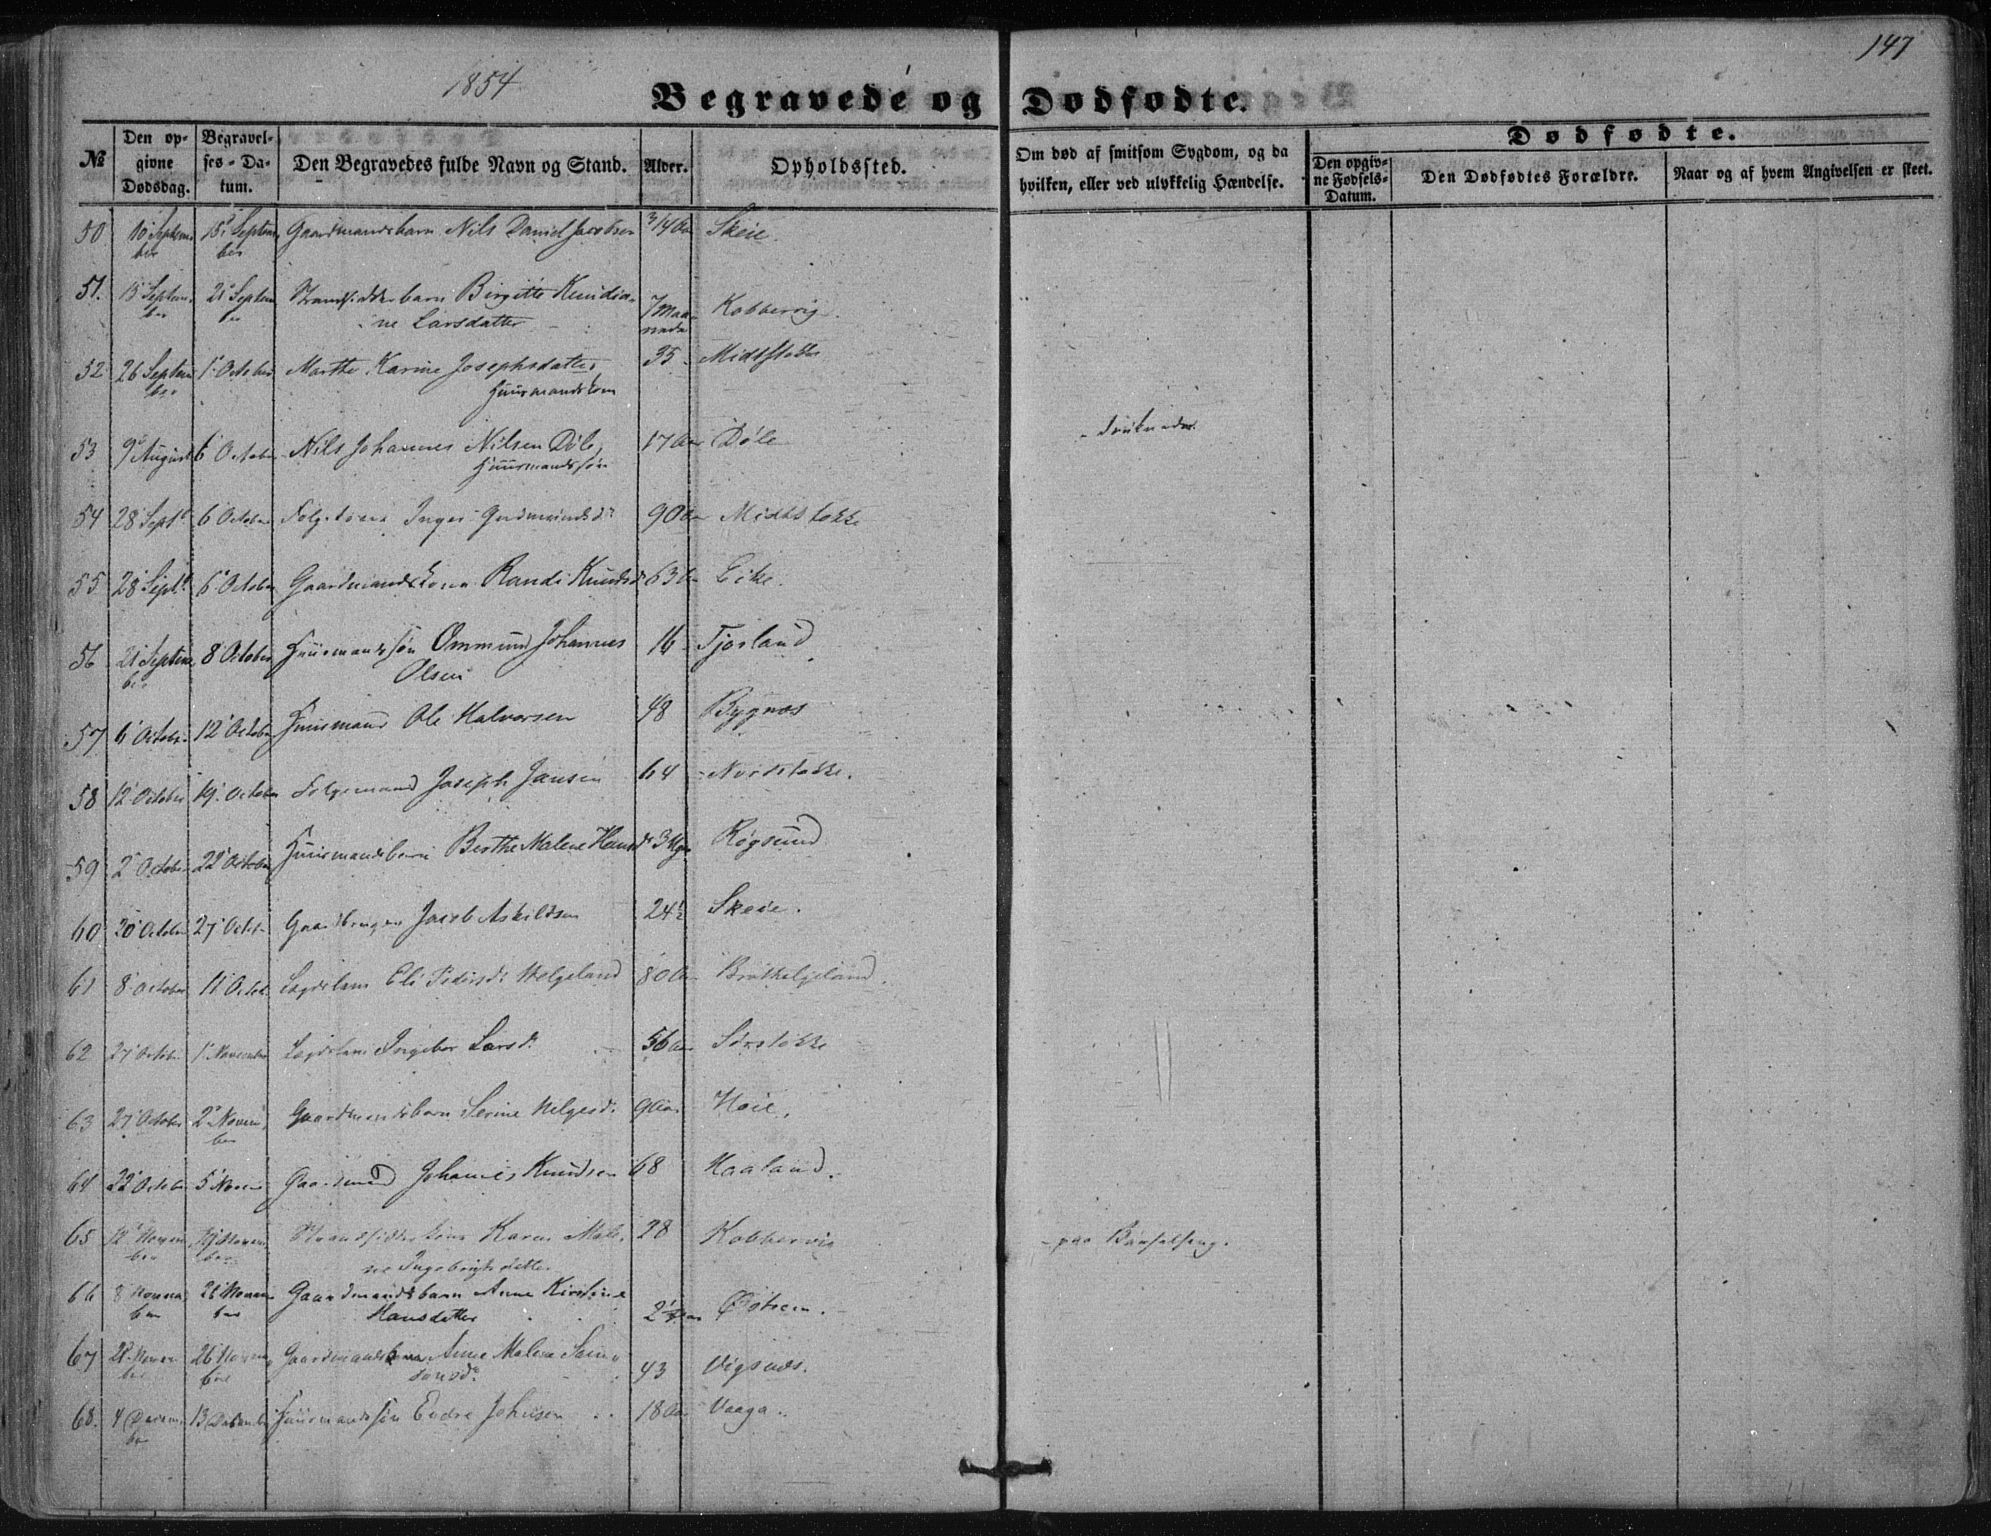 147
1854
Begravede og Dødfødte.
№
Den opgivne Dødsdag.
Begravelses-Datum.
Den Begravedes fulde Navn og Stand.
Alder.
Opholdssted.
Om død af smitsom Sygdom, og da hvilken, eller ved ulykkelig Hændelse.
Dødfødte.
Den opgivne Fødsels-Datum.
Den Dødfødtes Forældre.
Naar og af hvem Angivelsen er skeet.
50 10 September 15 September Gaardmandsbarn Nils Daniel Jacobsen 3/4 Aar Skeie.
51. 15 September 21 September Strandsidderbarn Birgitte Knudia-
ne Larsdatter 7 Maaneder Kobbervig.
52 26 September 1 October Marthe Karine Josephsdatter 35 Midtstokke
Huusmandskone
53 9 August 6 October Nils Johannes Nilsen Døle, 17 Aar Døle druknede
Huusmandssøn
54 28 Sept. 6 October Folgekone Inger Gudmundsdr 90 Aar Midtstokke
55 28 Sept. 6 October Gaardmandskone Randi Knudsdr 63 Aar Eike.
56 21 September 8 October Huusmandssøn Ommund Johannes 16 Tjosland
Olsen
57 6 October 12 October Huusmand Ole Halvorsen 48 Bygnæs
58 12 October 19 October Folgemand Joseph Jansen 64 Nordstokke.
59 2 October 22 October Huusmandsbarn Berthe Malene Hansdr 3 Uger Røgsund
60 20 October 27 Octob Gaardbruger Jacob Askildsen 24½ Skeie.
61 8 October 11 Octob Lægdslem Eli Pedersdr Helgeland 80 Aar
62 27 October 1 November Lægdslem Ingebor Larsdr 56 Aar Sørstokke
63 27 October 2 November Gaardmandsbarn Serine Helgesdr. 9 Aar Høie.
64 22 October 5 Novem Gaardmand Johannes Knudsen 68 Haaland.
65 12 November 19 November Strandsidderkone Karen Male- 28 Kobbervig paa Barselseng.
ne Ingebrigtsdatter
66 8 November 26 November Gaardmandsbarn Anne Kirstine
Hansdatter 2¼ Aar Østrem.
67 November 26 November Gaardmandskone Anne Malene Sam- 43 Vigsnæs.
sonsdr
68. 4 December 13 December Huusmandssøn Endre Johnsen 18 Aar Vaaga.